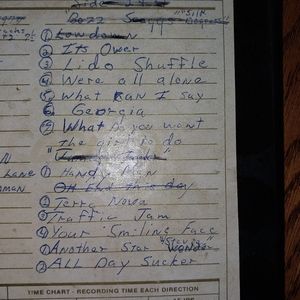 Side
Bozz Scaggs "Silk Degrees"
① Lowdown
② Its Over
③ Lido Shuffle
④ Were all alone
⑤ What Can I say
⑥ Georgia
⑦ What Do you want
the girl to do
① Handy Man
Oh that this day
① Terra Nova
③ Traffic Jam
④ Your Smiling Face
① Another Star "Stevie Wonder"
② ALL Day Sucker
N
Lane
man
TIME CHART - RECORDING TIME EACH DIRECTION